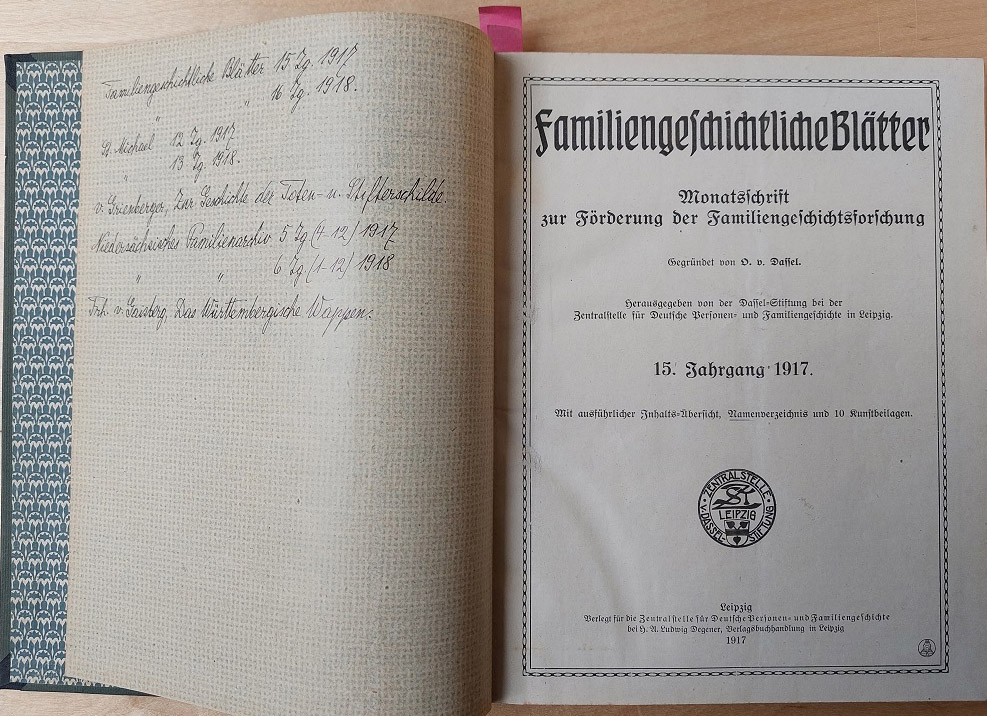 Familiengeschichtliche Blätter 15 Jg. 1917
" " 16 Jg. 1918.
St. Michael 12 Jg. 1917
" 13 Jg. 1918.
v. Grienberger, Zur Geschichte der Toten- u. Stifterschilde.
Niedersächsisches Familienarchiv 5 Jg (4-12) 1917
" " 6 Jg. (1-12) 1918
Frh. v. Gaisberg, Das Württembergische Wappen.
Familiengeschichtliche Blätter
Monatsschrift
zur Förderung der Familiengeschichtsforschung
Gegründet von O. v. Dassel.
Herausgegeben von der Dassel-Stiftung bei der
Zentralstelle für Deutsche Personen- und Familiengeschichte in Leipzig.
15. Jahrgang 1917.
Mit ausführlicher Inhalts-Übersicht, Namenverzeichnis und 10 Kunstbeilagen.
ZENTRALSTELLE
LEIPZIG
V. DASSEL-STIFTUNG
Leipzig
Verlegt für die Zentralstelle für Deutsche Personen- und Familiengeschichte
bei H. A. Ludwig Degener, Verlagsbuchhandlung in Leipzig
1917